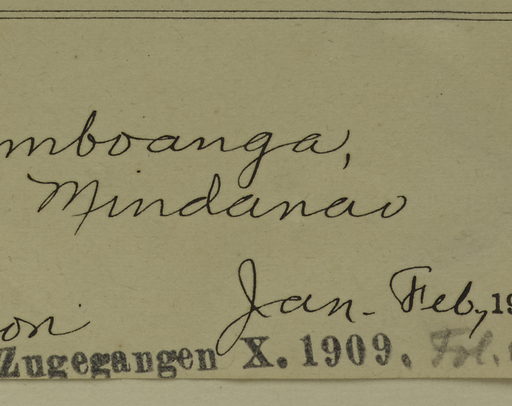 mboanga,
Mindanao
on Jan.-Feb., 19
Zugegangen X. 1909. Fol.